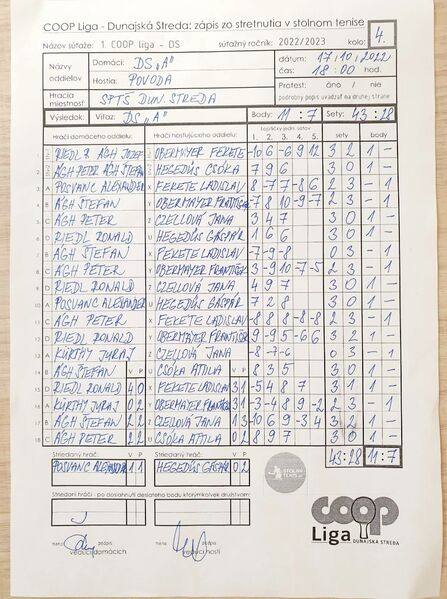 COOP Liga - Dunajská Streda: zápis zo stretnutia v stolnom tenise
Názov súťaže: 1. COOP liga - DS súťažný ročník: 2022/2023 kolo: 4.
Názvy oddielov Domáci: DS „A" dátum: 17/10/2022
Hostia: POVODA čas: 18:00 hod.
Hracia miestnosť SPTŠ DUN. STREDA Protest: áno / nie
podrobný popis uvádzať na druhej strane
Výsledok: Víťaz: DS „A" Body: 11 : 7 Sety: 43 : 28
Hráči domáceho oddielu: Hráči hosťujúceho oddielu: Loptičky jedn. setov 1. 2. 3. 4. 5. sety body
RIEDL R AGH JOZEF OBERMAYER FEKETE -10 6 -6 9 12 3 2 1 -
AGH PETER AGH ŠTEFAN HEGEDŰS CSÓKA 7 9 6 3 0 1 -
3. A POSVANC ALEXANDER X FEKETE LADISLAV 8 -7 -7 -8 6 2 3 - 1
4. B AGH ŠTEFAN Y OBERMAYER FRANTIŠEK -7 8 10 -9 -7 2 3 - 1
5. C AGH PETER Z CZELLOVÁ JANA 3 4 7 3 0 1 -
6. D RIEDL RONALD U HEGEDŰS GÁSPÁR 1 6 6 3 0 1 -
7. B AGH ŠTEFAN X FEKETE LADISLAV -7 -9 -8 0 3 - 1
8. C AGH PETER Y OBERMAYER FRANTIŠEK 3 -9 10 -7 -5 2 3 - 1
9. D RIEDL RONALD Z CZELLOVÁ JANA 4 9 7 3 0 1 -
10. A POSVANC ALEXANDER U HEGEDŰS GÁSPÁR 7 2 8 3 0 1 -
11. C AGH PETER X FEKETE LADISLAV -8 8 8 -8 -8 2 3 - 1
12. D RIEDL RONALD Y OBERMAYER FRANTIŠEK 9 -9 5 -6 6 3 2 1 -
13. A KÜRTHY JURAJ Z CZELLOVÁ JANA -8 -7 -6 0 3 - 1
14. B AGH ŠTEFAN V P U CSÓKA ATTILA V P 8 3 5 3 0 1 -
15. D RIEDL RONALD 4 0 X FEKETE LADISLAV 3 1 -5 4 8 7 3 1 1 -
16. A KÜRTHY JURAJ 0 2 Y OBERMAYER FRANTIŠEK 3 1 -3 -4 8 9 -2 2 3 - 1
17. B AGH ŠTEFAN 2 2 Z CZELLOVÁ JANA 1 3 -10 6 9 -3 4 3 2 1 -
18. C AGH PETER 2 2 U CSÓKA ATTILA 0 2 8 9 7 3 0 1 -
Striedaný hráč: V P Striedaný hráč: V P 43:28 11:7
POSVANC ALEXANDER 1 1 HEGEDŰS GÁSPÁR 0 2
STOLNÝ TENIS
Striedaní hráči - po dosiahnutí desiateho bodu ktorýmkoľvek družstvom:
coop
Liga DUNAJSKÁ STREDA
meno podpis meno podpis
vedúci domácich vedúci hostí